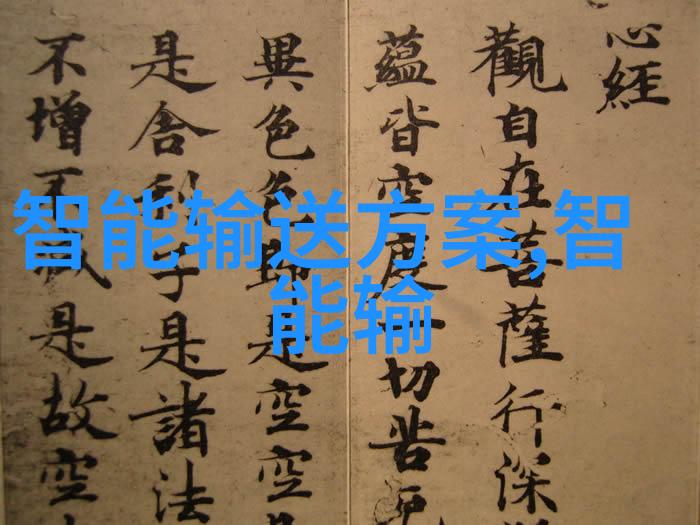 心經
觀自在菩薩行深
蘊皆空度一切苦厄
異色色即是空空
是舍利子是諸法
不增不減是故空
智能输送方案,智
能输